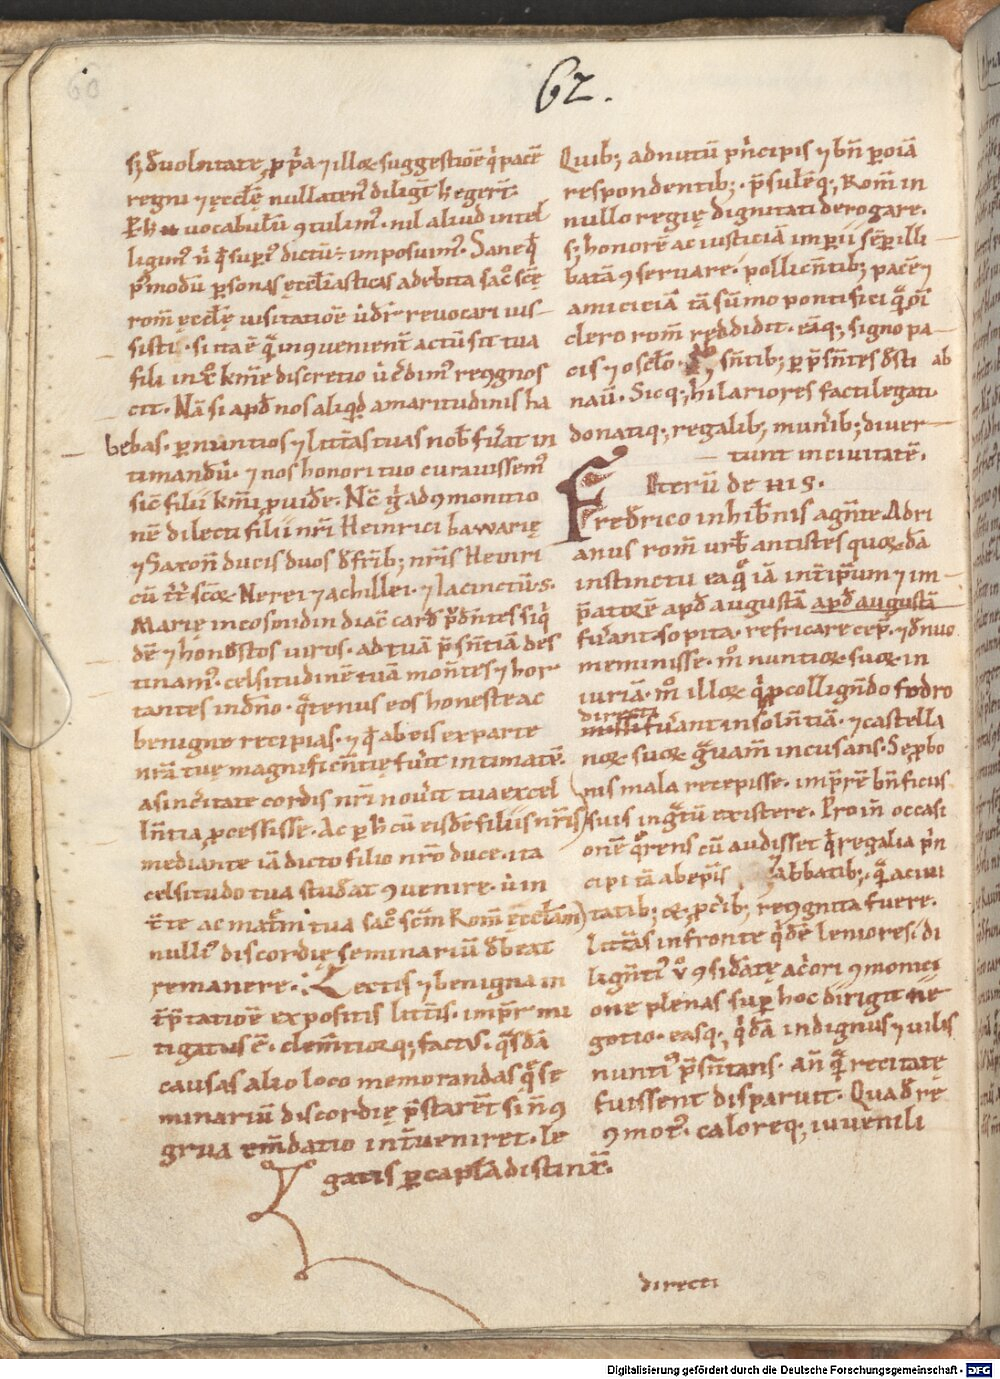 60
62.
sꝫ đ uoluntate, ꝓp̾a ⁊ illoꝝ suggestiōe q̾ pacē
regni ⁊ ęccl̄ę nullaten᷒ diligt̄ h egerīt.
P̱ h uocabulū ↄtulim᷒. nil aliud intel
ligim᷒ n̄ qđ sup̱i᷒ dictū÷ imposuim᷒. Sane qđ
p̾modū p̱sonas ęccl̄iasticas a debita sac̊ scē
rom̄ ęccl̄ę uisitatiōe ud̾r reuocari uis
sisti. si ita ē q̄ inↄuenient̄ actū sit tua
fili in xp̄o km̄e discretio ut c̾dim᷒ recognos
cit. Nā si apđ nos aliqid amaritudinis ha
bebas. p̱ nuntios ⁊ litt̄as tuas nob̄ fu̾at in
timandū. ⁊ nos honori tuo curauissem᷒
sic̄ filii km̄i ꝓuide. Nc̄ g̾ ad ↄmonitio
nē dilecti filii nr̄i Heinrici bawarię
⁊ Saxon̄ ducis duos đ fr̄ib; nr̄is Heinri
cū tt̄ sc̄oꝝ Nerei ⁊ achillei. ⁊ Iacinctū. S.
Marię in cosmidin diac̄ card p̾đntes siq̾
dē ⁊ honestos uiros. ad tuā p̄sn̄tiā des
tinam᷒. celsitudinē tuā monn̄tes ⁊ hor
tantes in dn̄o. q̄tenus eos honeste ac
benigne recipias. ⁊ qđ ab eis ex parte
nr̄a tuę magnificn̄tię fu̾it intimatē.
a sinc̾itate cordis nr̄i nou̾it tua excel
ln̄tia ꝓcessisse. Ac p̱ h̄ cū eisdē filiis nr̄is
mediante iā dicto filio nr̄o duce. ita
celsitudo tua studeat ↄuenire. ut in
t̄ te ac matr̄m tua sac̊ scm̄ Rom̄ ęccl̄am
null᷒ discordię seminariū đbeat
remanere. Lectis ⁊ benigna in
t̄p̄tatiōe expositis litt̄is. imp̄r mi
tigatus ē. clem̄tiorq; fact᷒. q̄sdā
causas alio loco memorandas q̄ se
minariū discordię p̄starēt si n̄ ↄ
grua em̄datio int̄ueniret. le
gatis p̱ capl̄a distinx̄.
Quib; ad nutū p̾ncipis ⁊ bn̄ p̱ oīā
respondentib;. p̄sulēq; Rom̄ in
nullo regię dignitati derogare.
sꝫ honorē ac iusticiā imp̱ii sēp̱ illi
batā ↄseruare. pollicn̄tib; pacē ⁊
amiciciā tā sūmo pontifici q̄ oī
clero rom̄ reddidit. eāq; signo pa
cis ⁊ osclo. sn̄tib; p̱ p̄sn̄tes đsti ab
nau̾. Sicq; hilariores facti legati.
donatiq; regalib; mun̾ib; diuer
tunt in ciuitatē.
Iterū de HIS.
Fredrico in hib̾nis agn̄te. Adri
anus rom̄ urb̄ antistes quoꝝdā
instinctu ea q̄ iā int̄ ip̄um ⁊ im
p̄atorē apđ augustā apđ augustā
fu̾ant sopita. refricare cep̾. ⁊ đnuo
meminisse. m̊ nuntioꝝ suoꝝ in
iuriā. m̊ illoꝝ q̾ p colligndo fodro
directi
missi fu̾ant insoln̄tiā. ⁊ castella
noꝝ suoꝝ g̾uam̄ incusans. Se ꝓ bo
nis mala recepisse. imp̄rē bn̄ficiis
suis ingtū existere. Proin̄ occasi
onē q̾rens cū audisset qđ regalia p̾n
cipi tā ab ep̄is abbatib;. q̄ a ciui
tatib; ⁊ ꝓc̾ib; recognita fuere.
Litt̄as in fronte q̾dē leniores. di
lign̄ti᷒ v̊ ↄsidatę ac̾ori ↄmonici
one plenas sup̱ hoc dirigit ne
gotio. easq; q̾dā indignus ⁊ uilis
nunti᷒ p̄sn̄tans. an̄ q̄ recitate
fuissent disparuit. Qua đ rē
ↄmot᷒. caloreq; iuuenili
directi
Digitalisierung gefördert durch die Deutsche Forschungsgemeinschaft - DFG